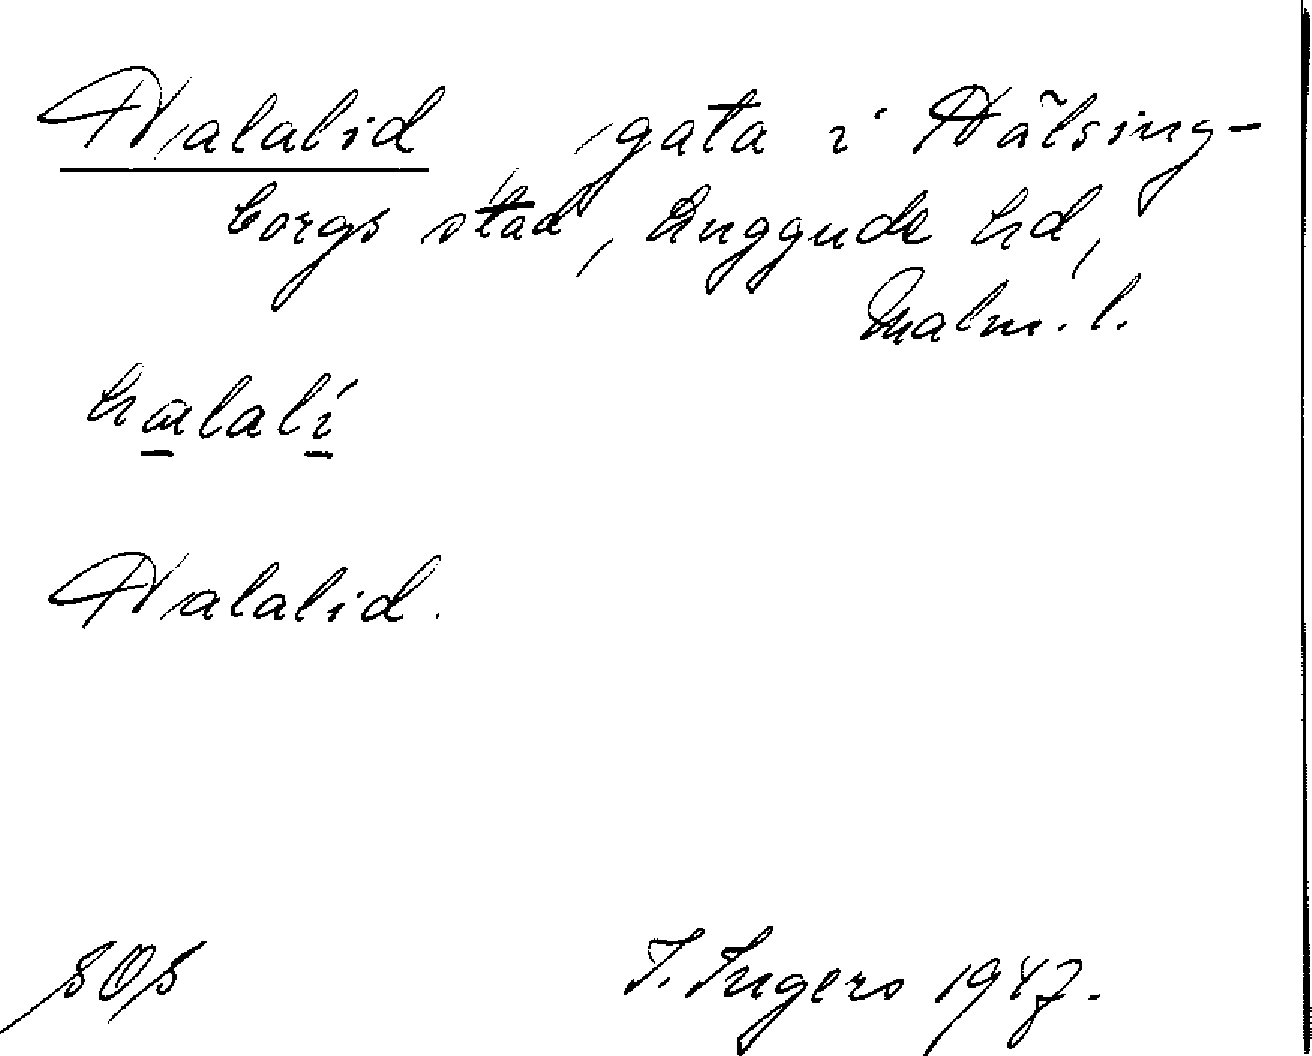 Halalid gata i Hälsing-
borgs stad, Luggude hd,
Malm. l.
halali
Halalid.
I. Ingers 1947.